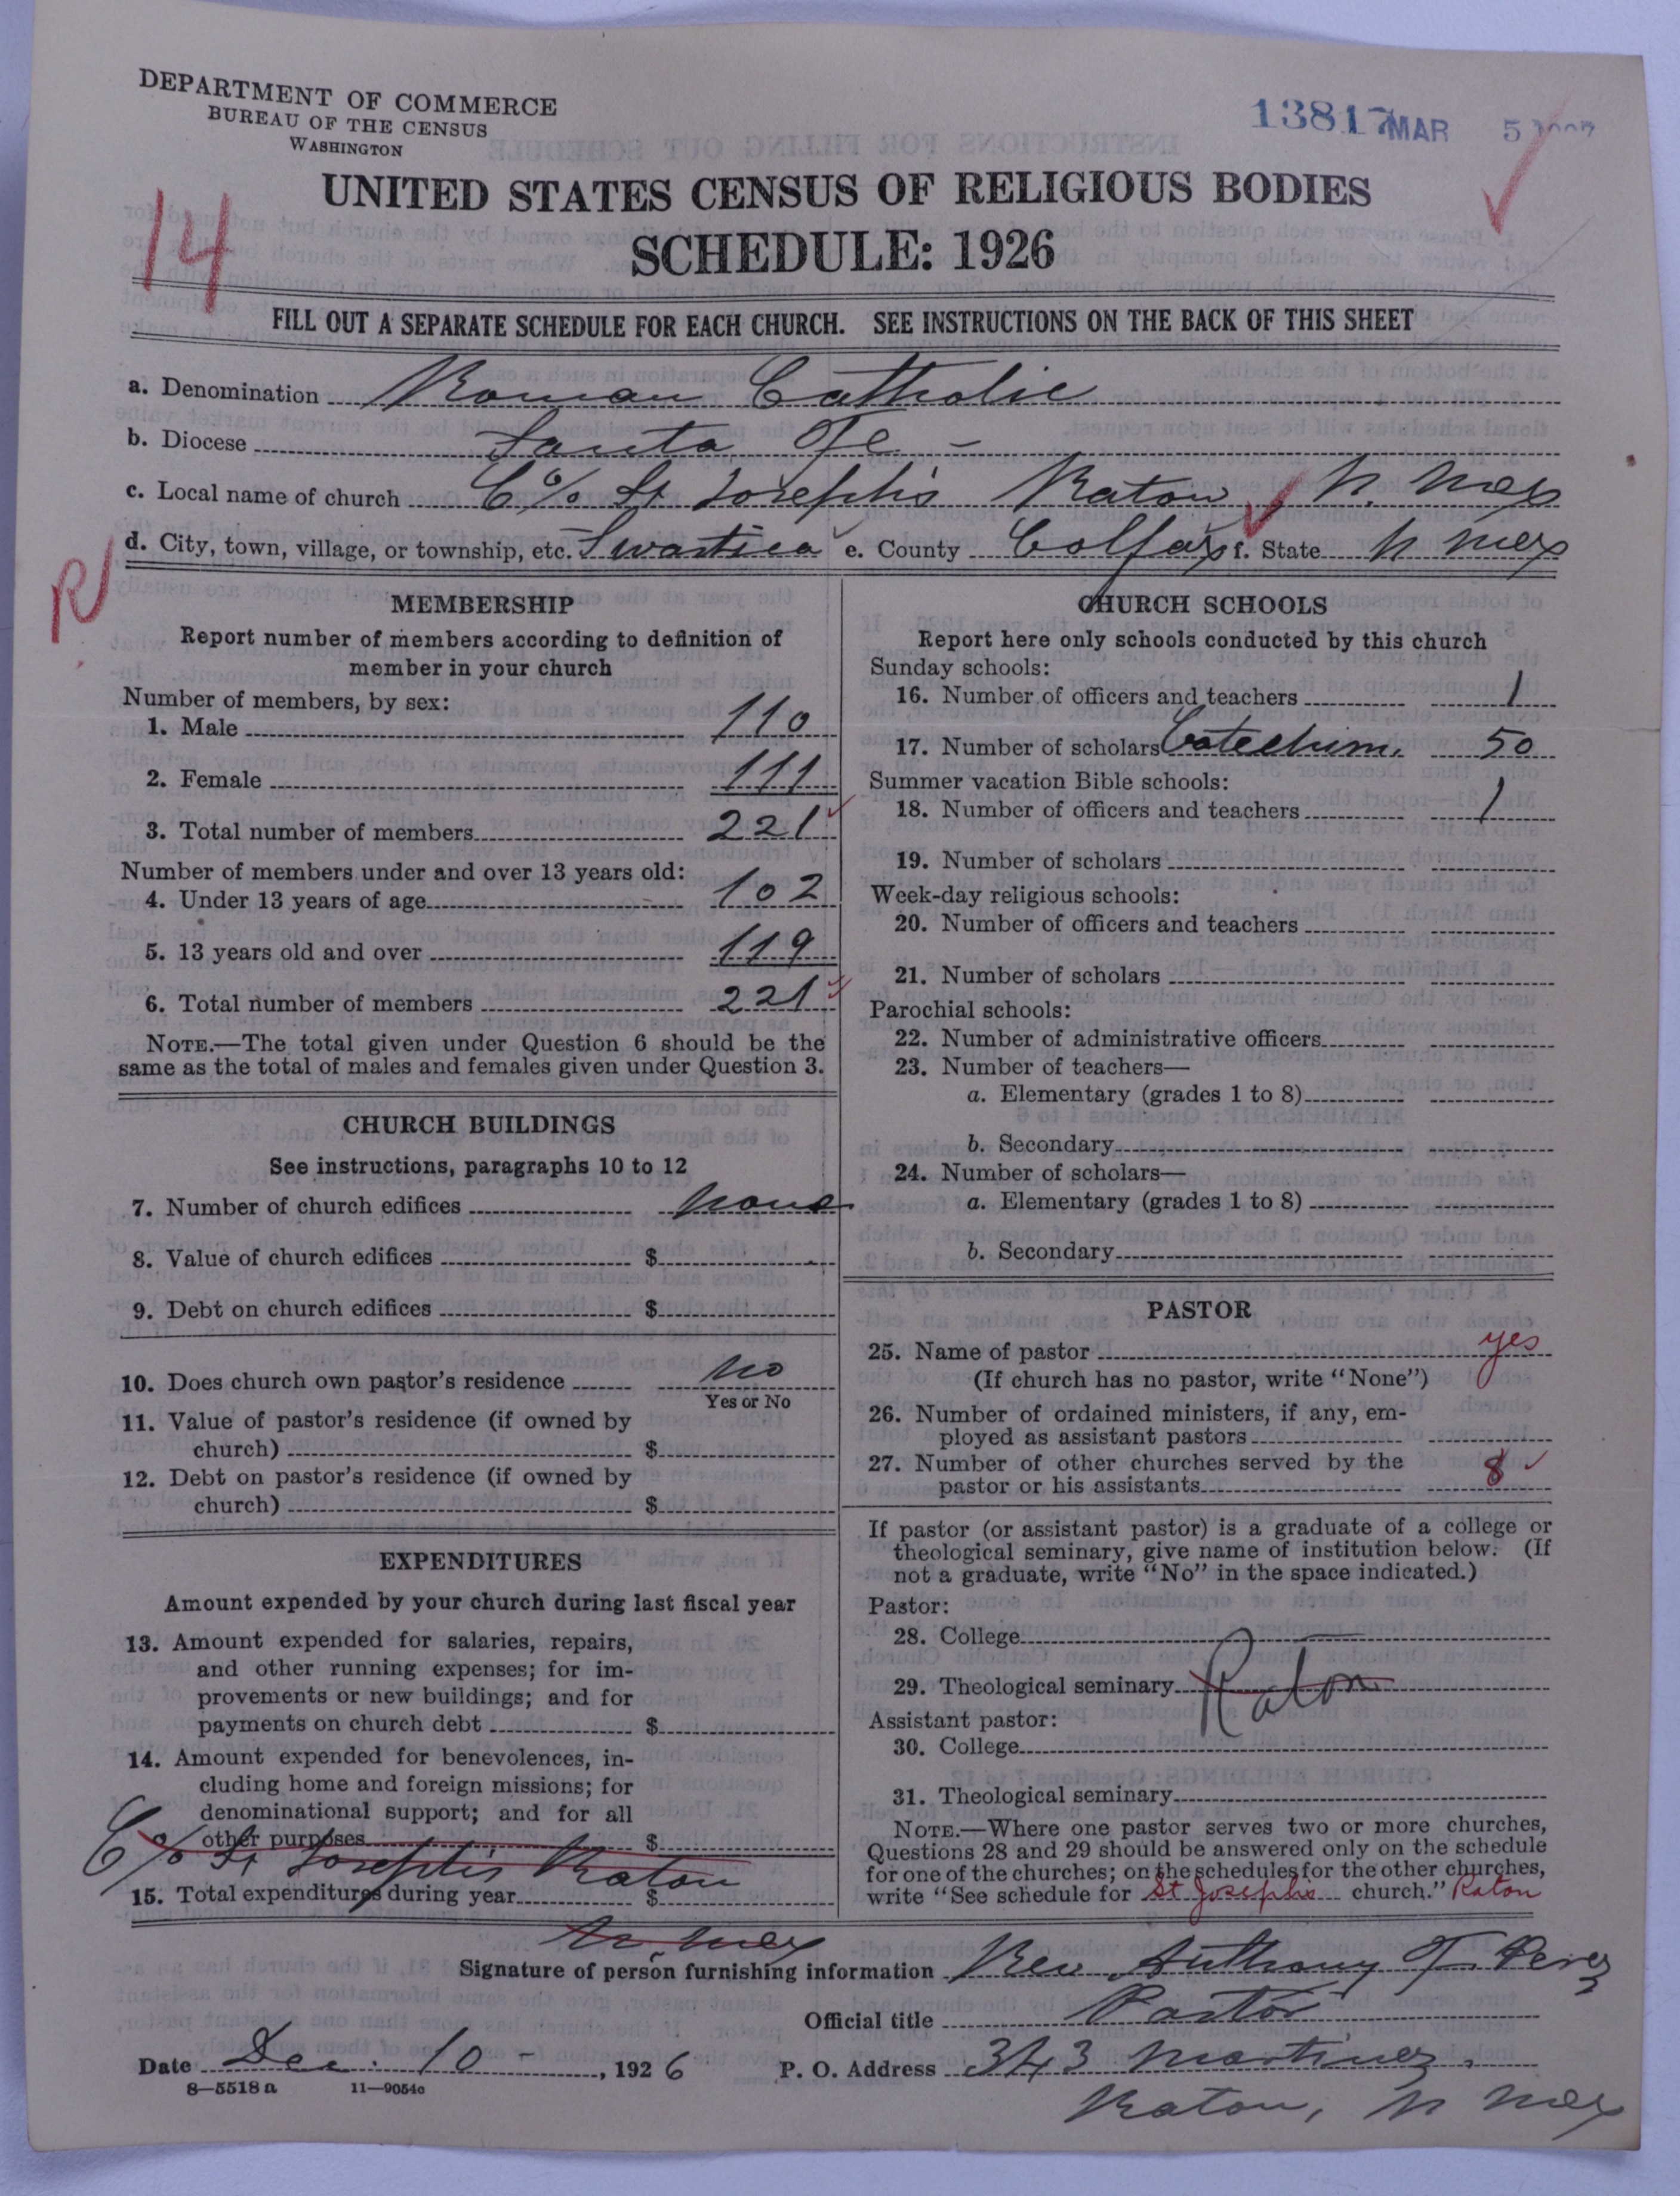 DEPARTMENT OF COMMERCE
BUREAU OF THE CENSUS
WASHINGTON
13817 MAR 5
UNITED STATES CENSUS OF RELIGIOUS BODIES
SCHEDULE: 1926
14
FILL OUT A SEPARATE SCHEDULE FOR EACH CHURCH. SEE INSTRUCTIONS ON THE BACK OF THIS SHEET
a. Denomination Roman Catholic
b. Diocese Santa Fe -
c. Local name of church C% St Joseph's Raton N. Mex
d. City, town, village, or township, etc. Swastica e. County Colfax f. State N Mex
R
MEMBERSHIP
Report number of members according to definition of
member in your church
Number of members, by sex:
1. Male 110
2. Female 111
3. Total number of members 221
Number of members under and over 13 years old:
4. Under 13 years of age 102
5. 13 years old and over 119
6. Total number of members 221
NOTE.—The total given under Question 6 should be the
same as the total of males and females given under Question 3.
CHURCH BUILDINGS
See instructions, paragraphs 10 to 12
7. Number of church edifices None
8. Value of church edifices $
9. Debt on church edifices $
10. Does church own pastor's residence No
Yes or No
11. Value of pastor's residence (if owned by
church) $
12. Debt on pastor's residence (if owned by
church) $
EXPENDITURES
Amount expended by your church during last fiscal year
13. Amount expended for salaries, repairs,
and other running expenses; for im-
provements or new buildings; and for
payments on church debt $
14. Amount expended for benevolences, in-
cluding home and foreign missions; for
denominational support; and for all
other purposes $
C% St Joseph's Raton
15. Total expenditures during year $
N. Mex
CHURCH SCHOOLS
Report here only schools conducted by this church
Sunday schools:
16. Number of officers and teachers 1
17. Number of scholars Catechism. 50
Summer vacation Bible schools:
18. Number of officers and teachers 1
19. Number of scholars
Week-day religious schools:
20. Number of officers and teachers
21. Number of scholars
Parochial schools:
22. Number of administrative officers
23. Number of teachers—
a. Elementary (grades 1 to 8)
b. Secondary
24. Number of scholars—
a. Elementary (grades 1 to 8)
b. Secondary
PASTOR
25. Name of pastor yes
(If church has no pastor, write "None")
26. Number of ordained ministers, if any, em-
ployed as assistant pastors
27. Number of other churches served by the
pastor or his assistants 8
If pastor (or assistant pastor) is a graduate of a college or
theological seminary, give name of institution below. (If
not a graduate, write "No" in the space indicated.)
Pastor:
28. College
29. Theological seminary Raton
Assistant pastor:
30. College
31. Theological seminary
NOTE.—Where one pastor serves two or more churches,
Questions 28 and 29 should be answered only on the schedule
for one of the churches; on the schedules for the other churches,
write "See schedule for St Joseph's church." Raton
Signature of person furnishing information Rev Anthony T. Perez
Official title Pastor
Date Dec. 10 -, 1926 P. O. Address 343 Martinez.
8—5518a 11—9054c
Raton, N Mex